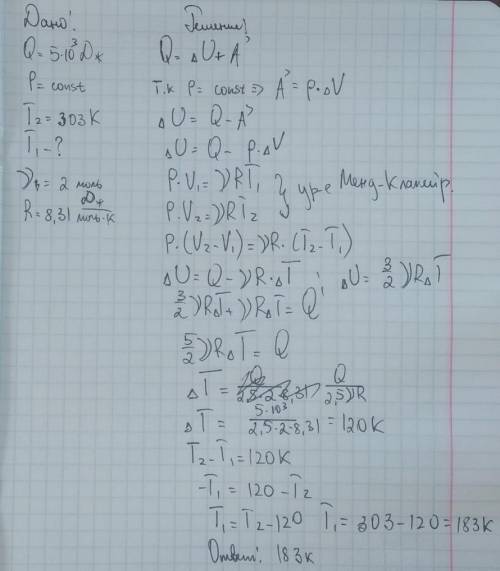 Дано:
Q = 5·10³ Дж
P = const
T₂ = 303 К
T₁ - ?
ν = 2 моль
R = 8,31 Дж/моль·К
Решение:
Q = ΔU + A'
т.к P = const => A' = P·ΔV
ΔU = Q - A'
ΔU = Q - P·ΔV
P·V₁ = νRT₁
P·V₂ = νRT₂ } ур-е Менд-Клапейр.
P·(V₂ - V₁) = νR·(T₂ - T₁)
ΔU = Q - νR·ΔT ΔU = 3/2 νRΔT
3/2 νRΔT + νRΔT = Q
5/2 νRΔT = Q
ΔT = Q/2,5νR
ΔT = 5·10³/2,5·2·8,31 = 120 К
T₂ - T₁ = 120 К
-T₁ = 120 - T₂
T₁ = T₂ - 120 T₁ = 303 - 120 = 183 К
Ответ: 183 К